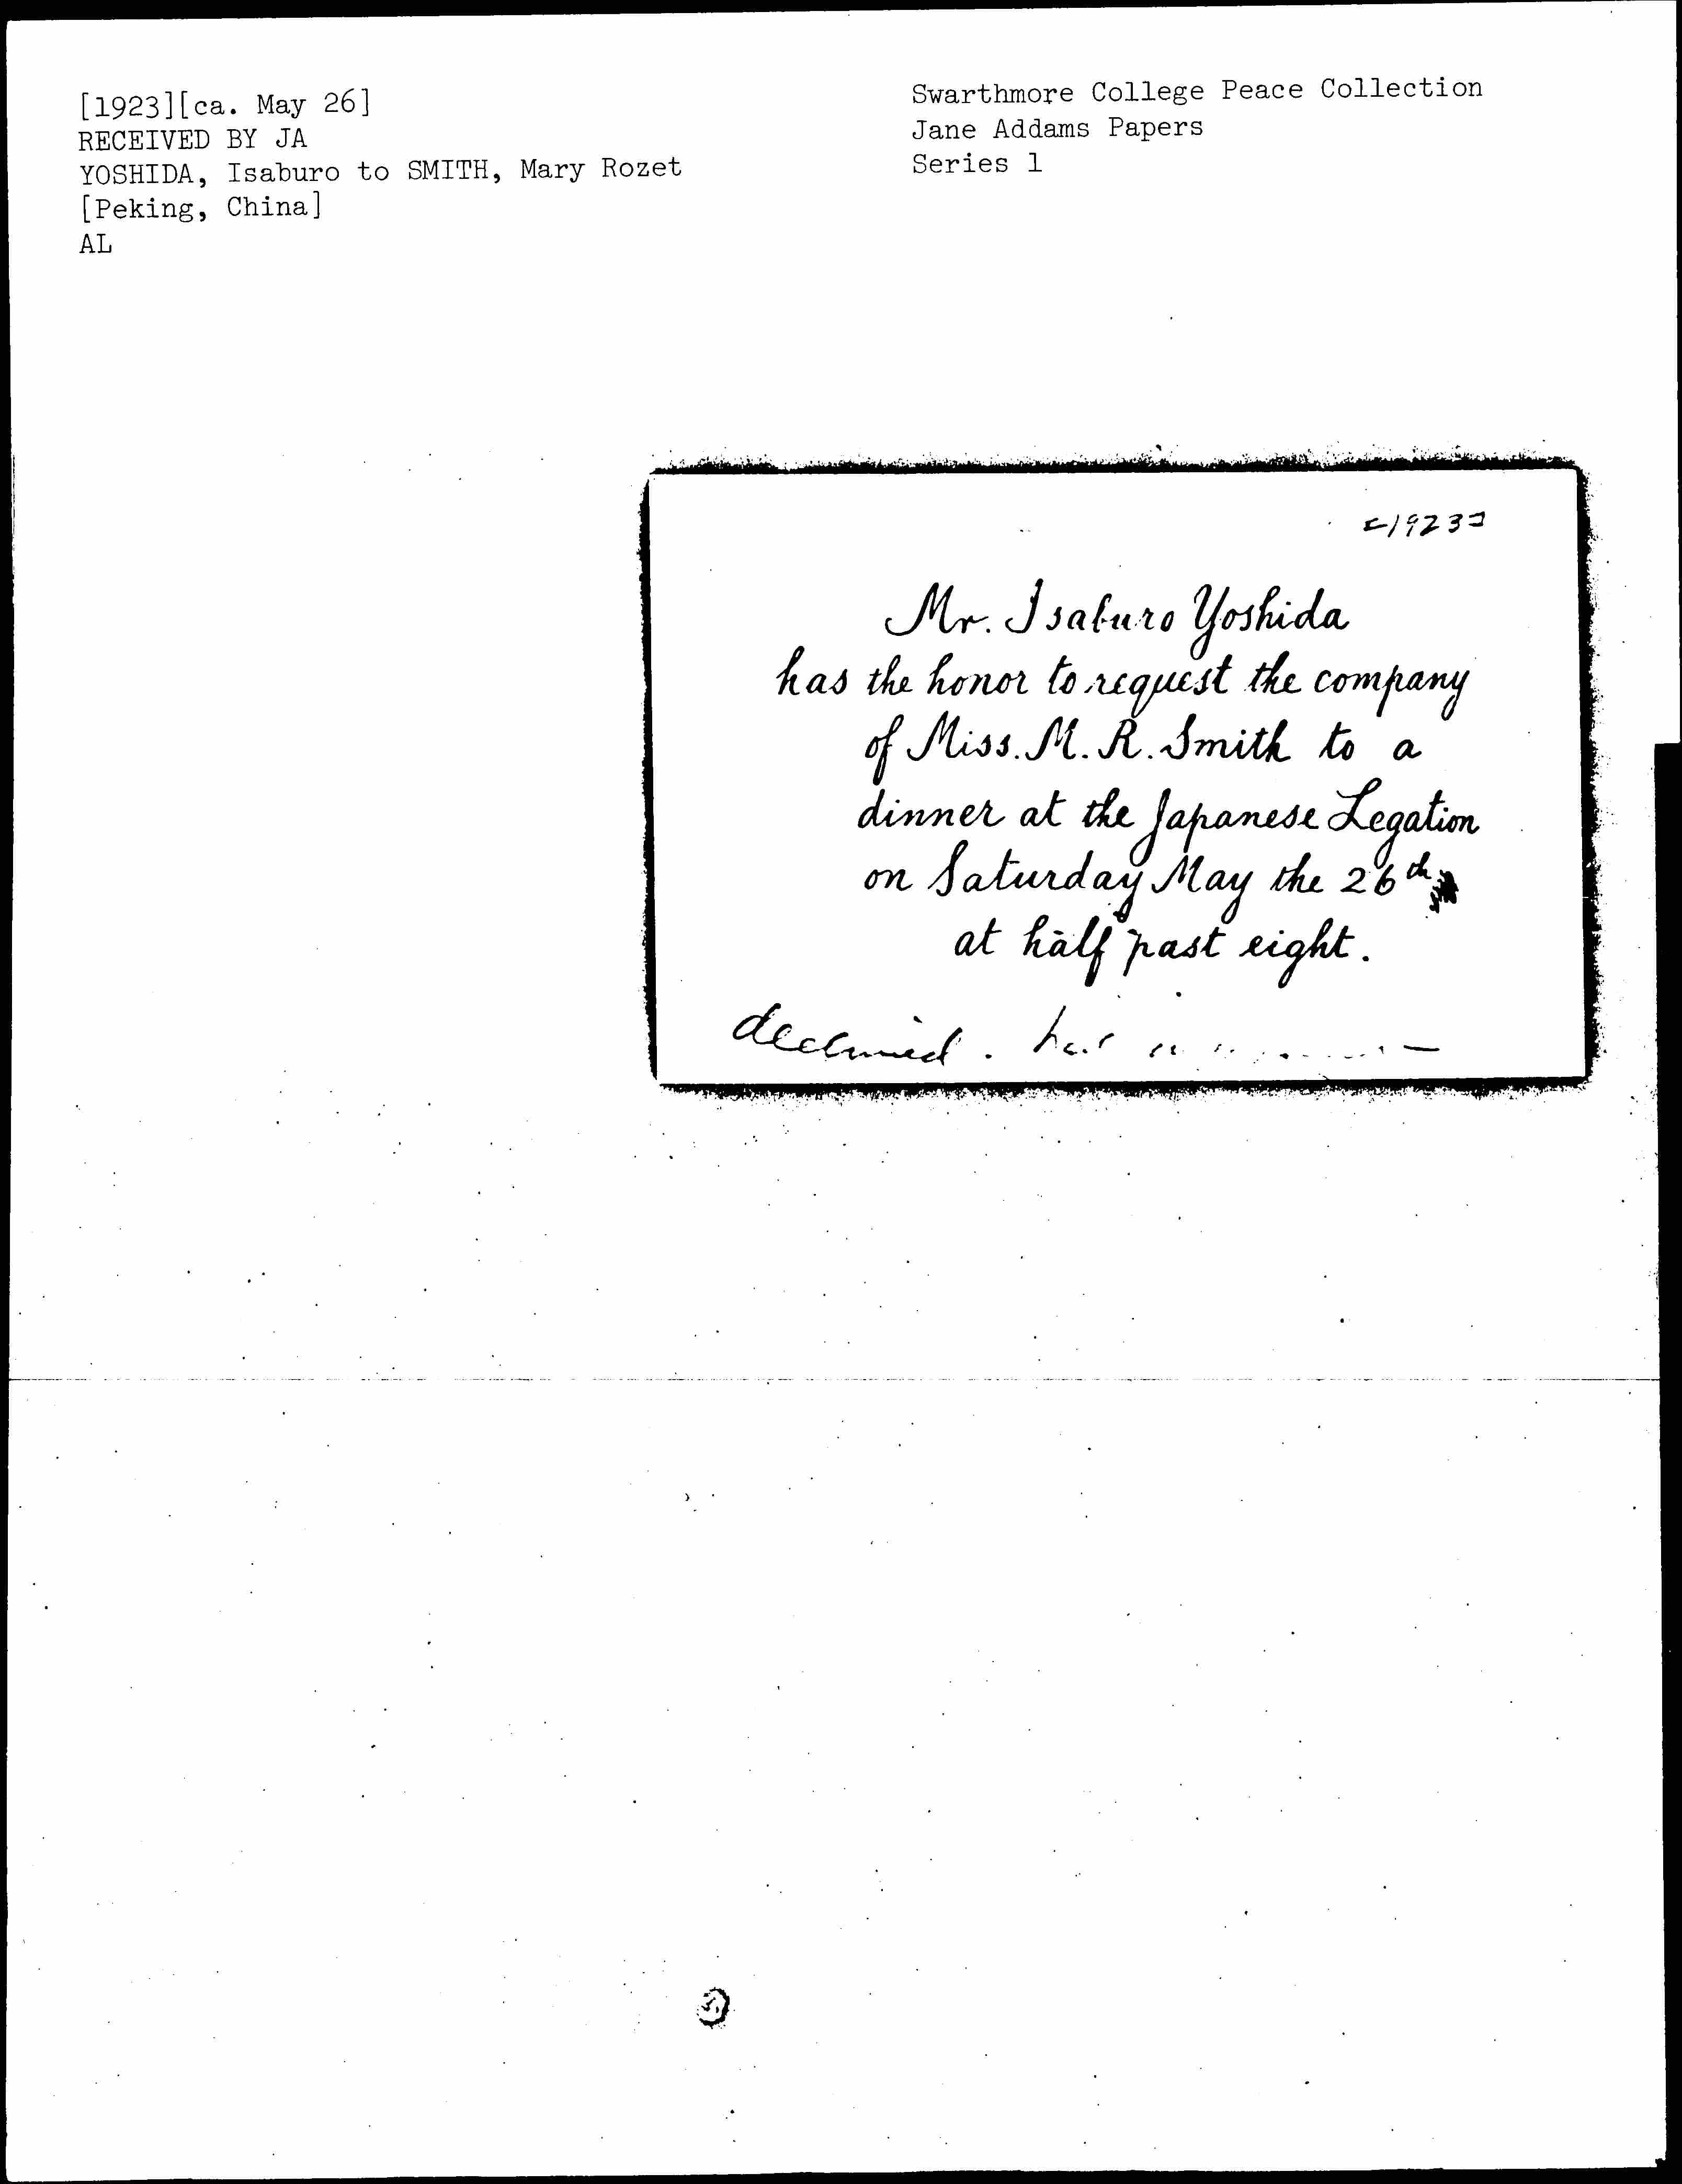 [1923][ca. May 26]
RECEIVED BY JA
YOSHIDA, Isaburo to SMITH, Mary Rozet
[Peking, China]
AL
Swarthmore College Peace Collection
Jane Addams Papers
Series 1
[1923]
Mr. Isaburo Yoshida
has the honor to request the company
of Miss. M. R. Smith to a
dinner at the Japanese Legation
on Saturday May the 26th
at half past eight.
declined.